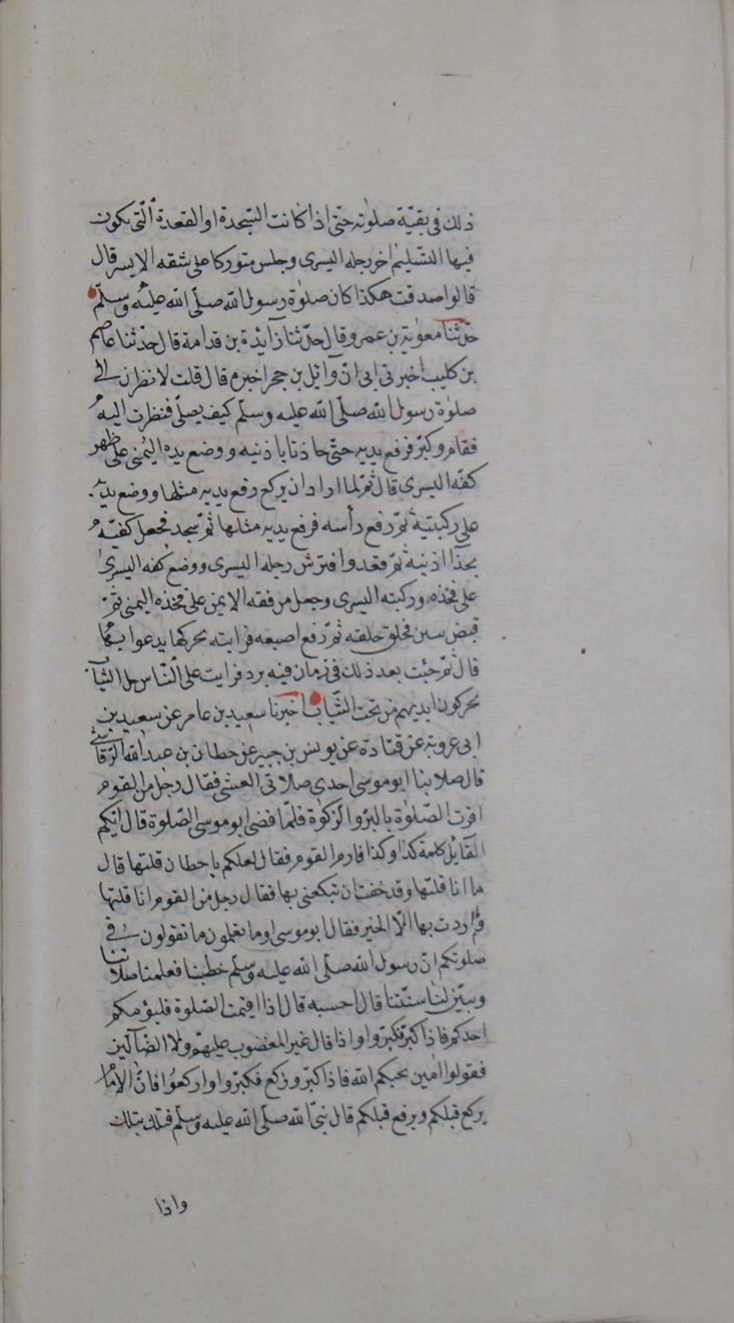 ذلك في بقيّة صلوٰته حتّى اذا كانت السّجدة او القعدة الّتي يكون
فيها التّسليم اخر رجله اليسرى وجلس متوركا على شقه الايسر قال
قالوا صدقت هكذا كان صلوٰة رسول الله صلّى الله عليه وسلّم
حدّثنا معوية بن عمرو قال حدّثنا زآئدة بن قدامة قال حدّثنا عاصم
بن كليب اخبرني ابي انّ وآئل بن حجر اخبره قال قلت لانظرن الى
صلوٰة رسول الله صلّى الله عليه وسلّم كيف يصلّي فنظرت اليه
فقام وكبّر فرفع يديه حتّى حاذتا باذنيه ووضع يده اليمنى على ظهر
كفّه اليسرى قال ثمّ لما اراد ان يركع رفع يديه مثلها ووضع يديه
على ركبتيه ثمّ رفع رأسه فرفع يديه مثلها ثمّ سجد فجعل كفيّه
بحذآ اذنيه ثمّ قعد وافترش رجله اليسرى ووضع كفه اليسرىٰ
على فخذه وركبته اليسرى وجعل مرفقه الايمن على فخذه اليمنى ثمّ
قبض ثنتين فحلق حلقه ثمّ رفع اصبعه فرايته يحركها يدعوا بها
قال ثمّ جئت بعد ذلك في زمان فيه برد فرايت على النّاس جل الثياب
يحركون ايديهم من تحت الثّياب اخبرنا سعيد بن عامر عن سعيد بن
ابي عروبة عن قتادة عن يونس بن جبير عن حطان بن عبد الله الرّقاشي
قال صلا بنا ابو موسى احدى صلاتي العشي فقال رجل من القوم
اقرت الصّلوٰة بالبرّ والزكوٰة فلمّا قضى ابو موسى الصّلوة قال ايّكم
القآئل كلمة كذا وكذا فارم القوم فقال لعلكم يا حطان قلتها قال
ما انا قلتها وقد خفت ان تبكعني بها فقال رجل من القوم انا قلتها
وما اردت بها الّا الخير فقال ابو موسى او ما تعلمون ما تقولون في
صلوتكم انّ رسول الله صلّى الله عليه وسلّم خطبنا فعلمنا صلاتنا
وبيّن لنا سنّتنا قال احسبه قال اذا اقيمت الصّلوة فليؤمكم
احدكم فاذا كبّر فكبّروا واذا قال غير المغضوب عليهم ولا الضآلّين
فقولوا اٰمين يحبكم الله فاذا كبّر وركع فكبّروا واركعوا فانّ الامام
يركع قبلكم ويرفع قبلكم قال نبيّ الله صلّى الله عليه وسلّم فتلك بتلك
واذا